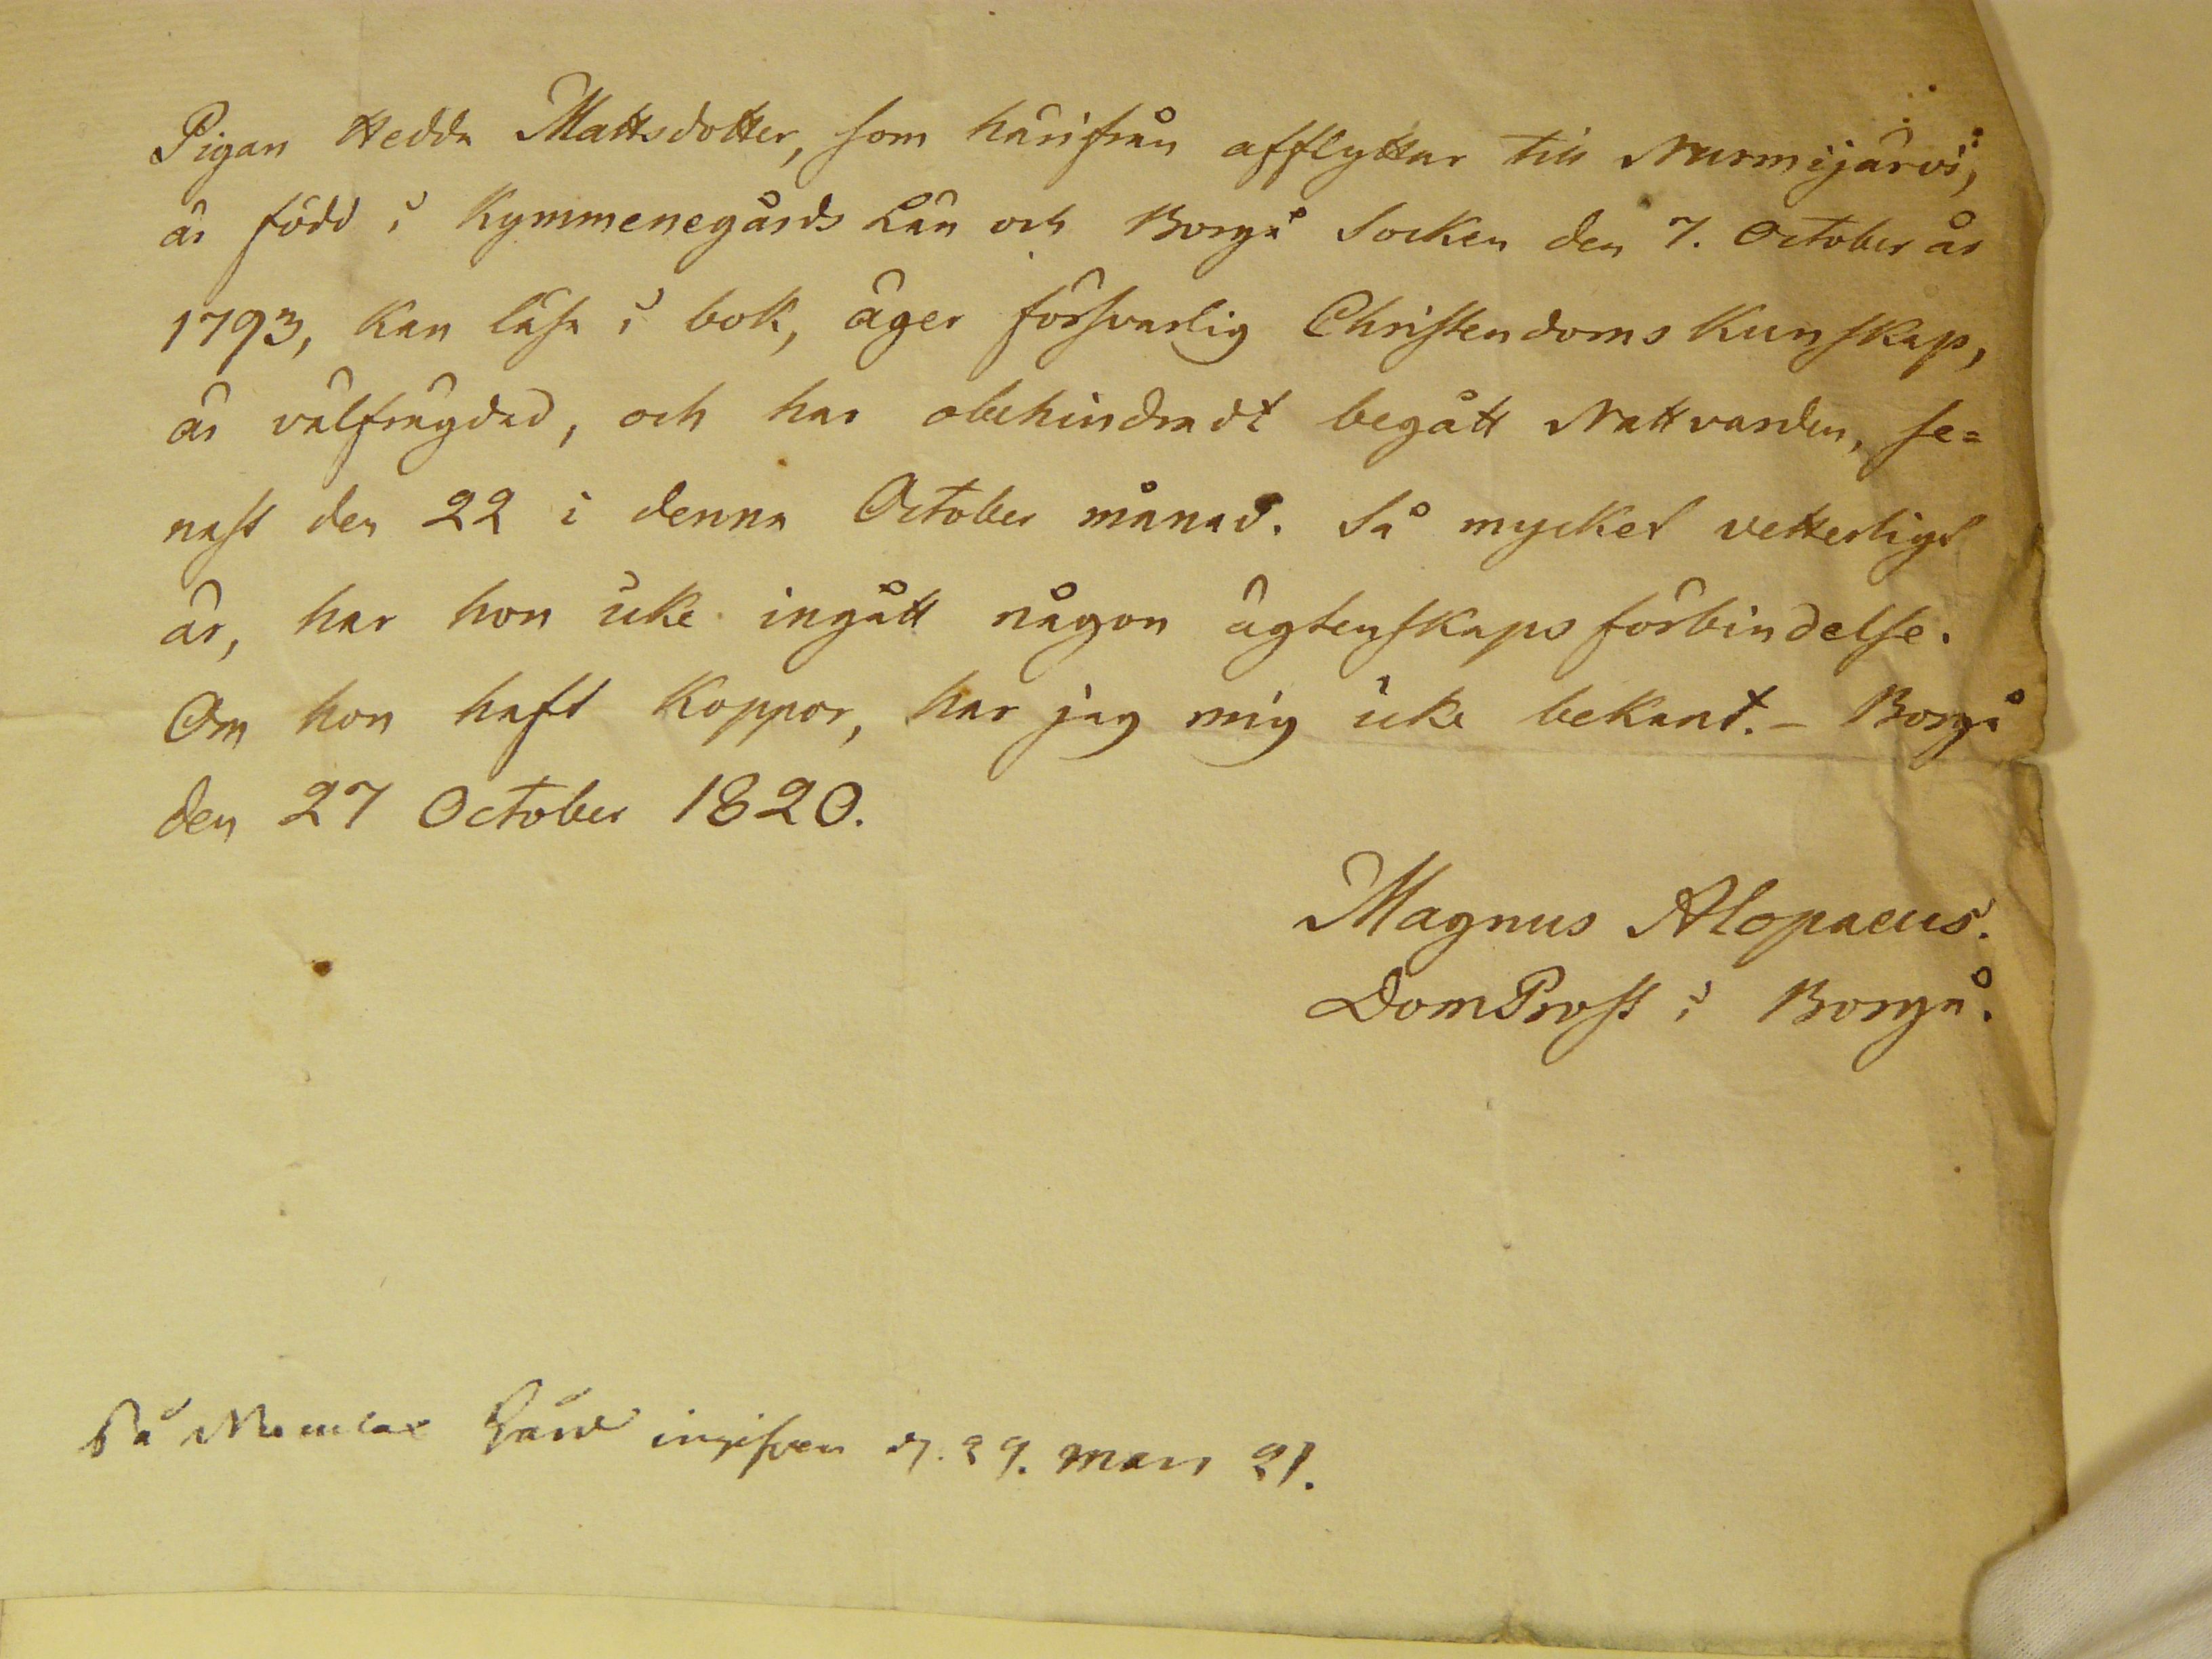 Pigan Hedda Mattsdotter, som härifrån afflyttar till Nurmijärvi,
är född i Kymmenegårds Län och Borgå Socken den 7. October år
1793, kan läsa i bok, äger försvarlig Christendoms Kunskap,
är välfrägdad, och har obehindradt begått Nattvarden, se=
nast den 22 i denna October månad. Så mycket vetterligt
är, har hon icke ingått någon ägtenskaps förbindelse.
Om hon haft Koppor, har jag mig icke bekant. – Borgå
den 27 October 1820.
Magnus Alopaeus.
DomProst i Borgå.
På Gård ingifven d. 29. Mars 21.